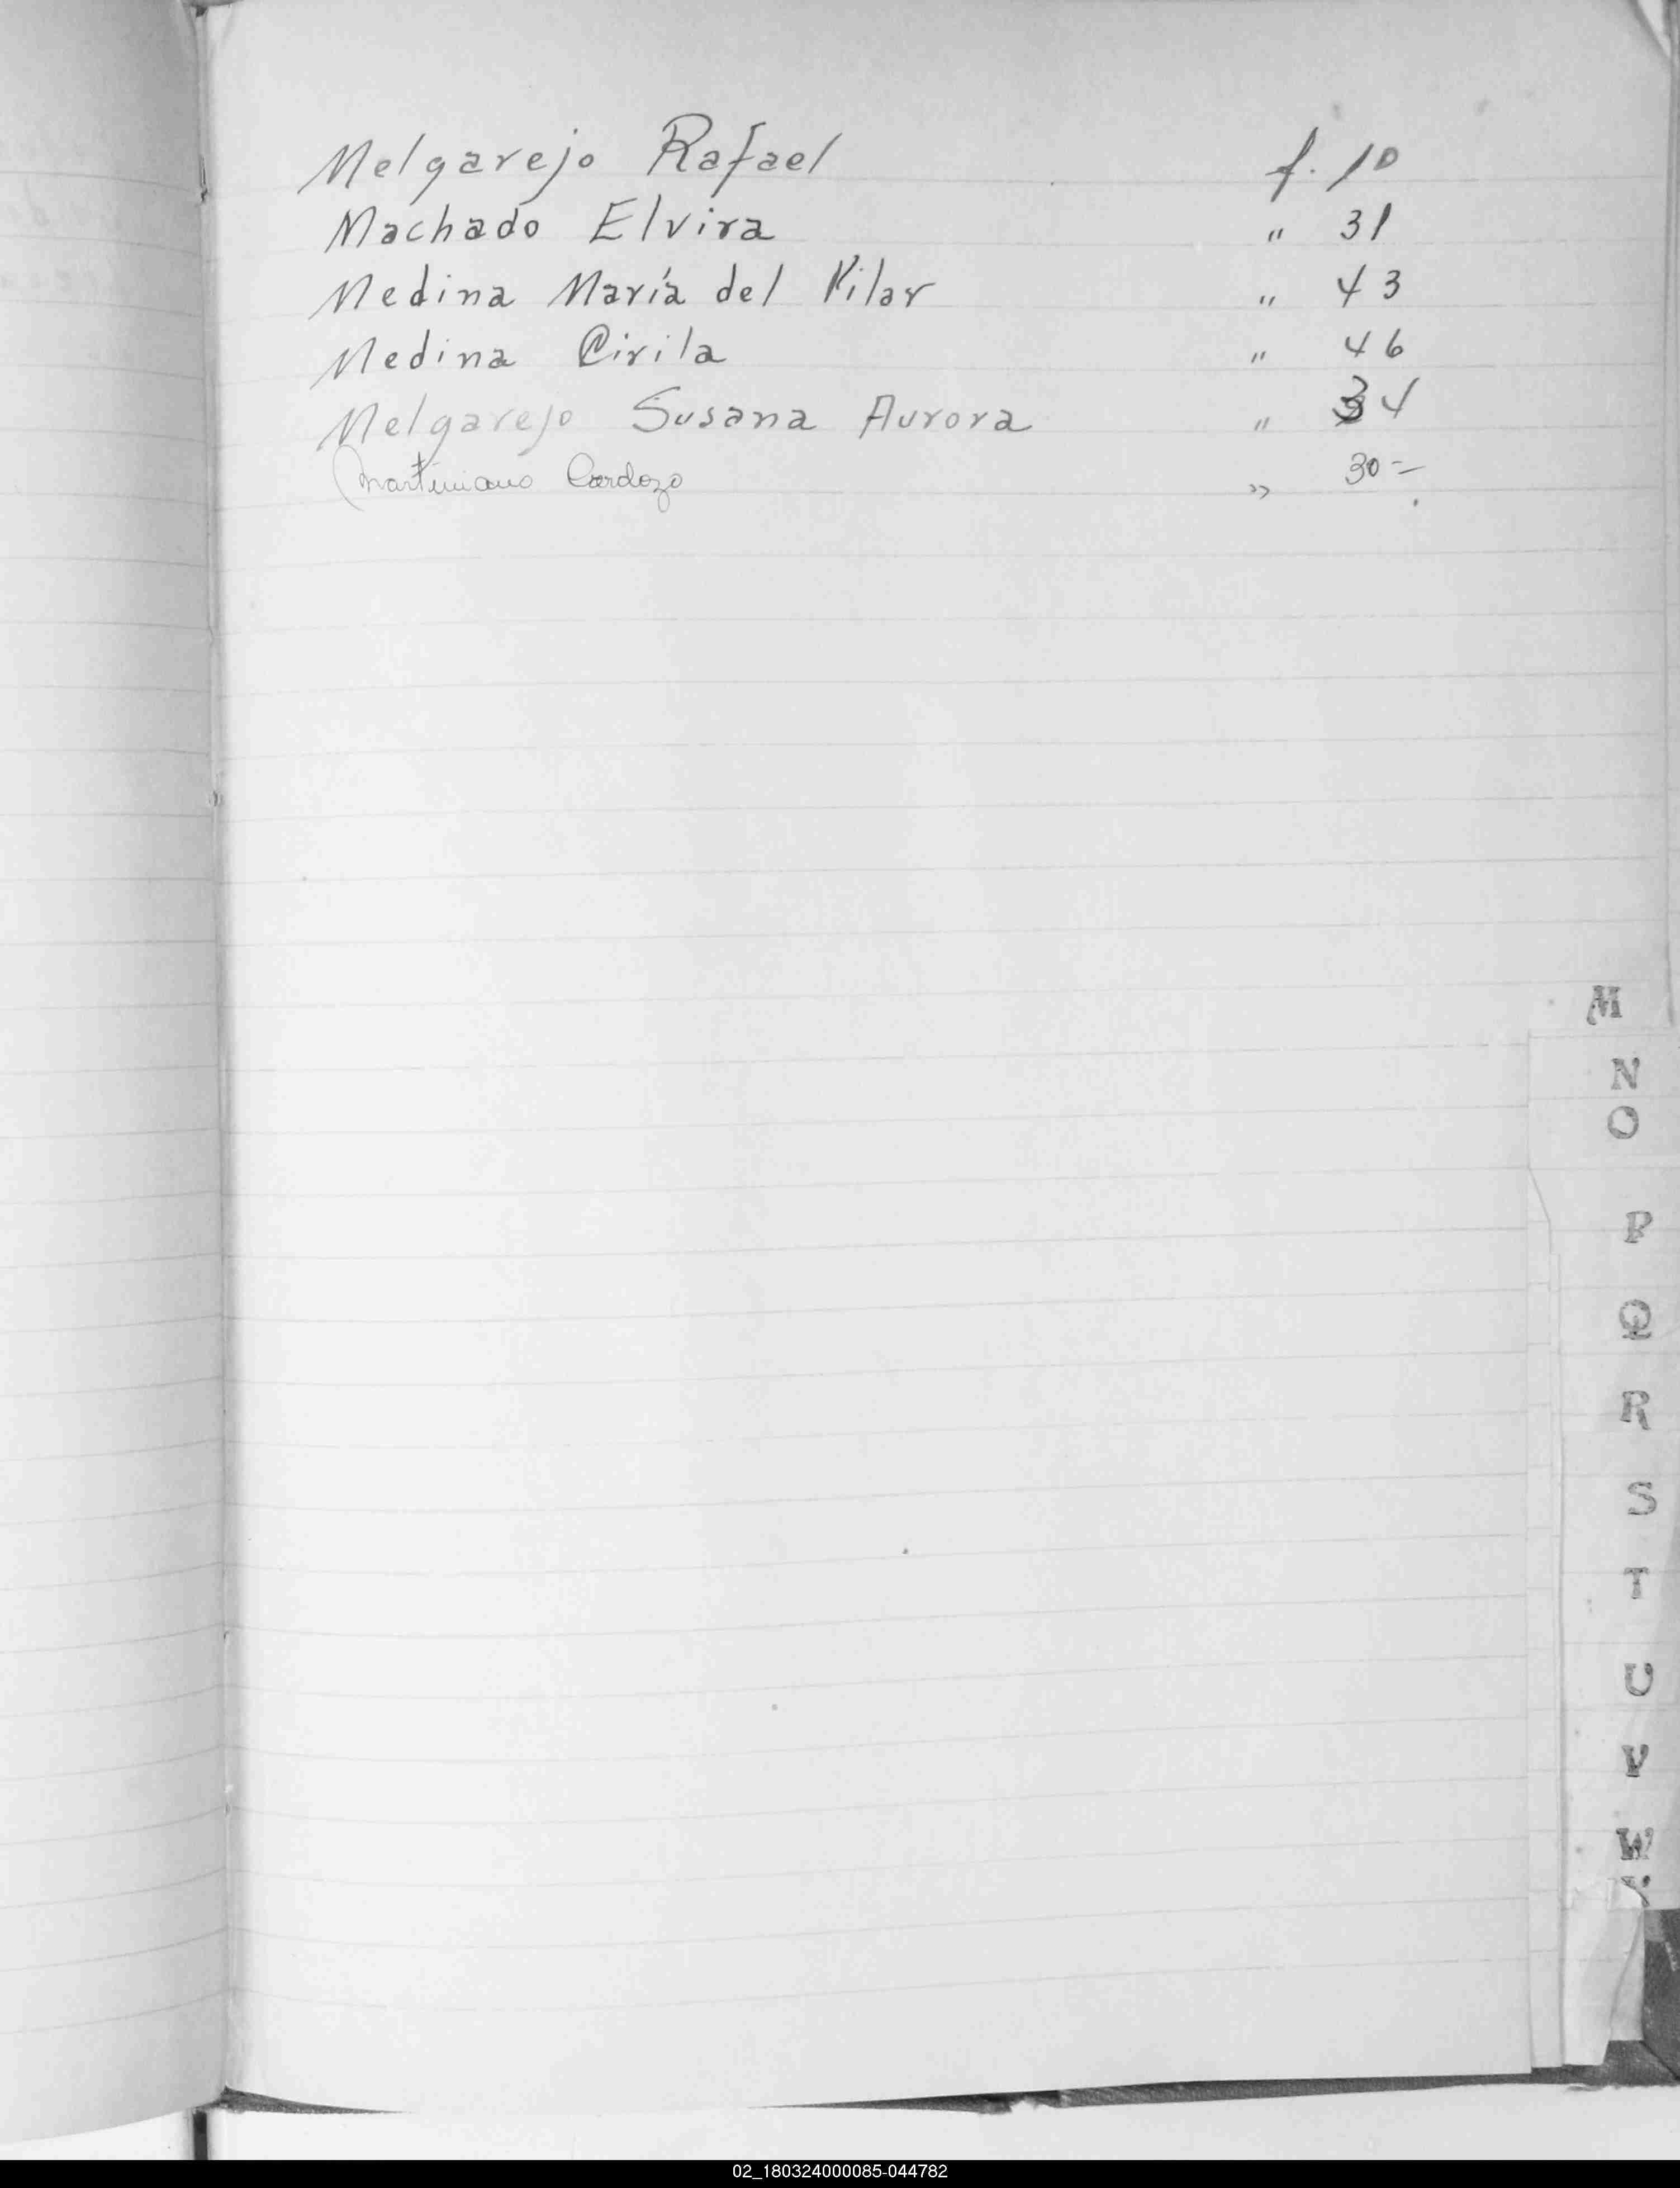 Melgarejo Rafael f. 10
Machado Elvira " 31
Medina María del Pilar " 43
Medina Cirila " 46
Melgarejo Susana Aurora " 34
Martiniano Cardozo " 30 =
M
N
O
P
Q
R
S
T
U
V
W
02_180324000085-044782